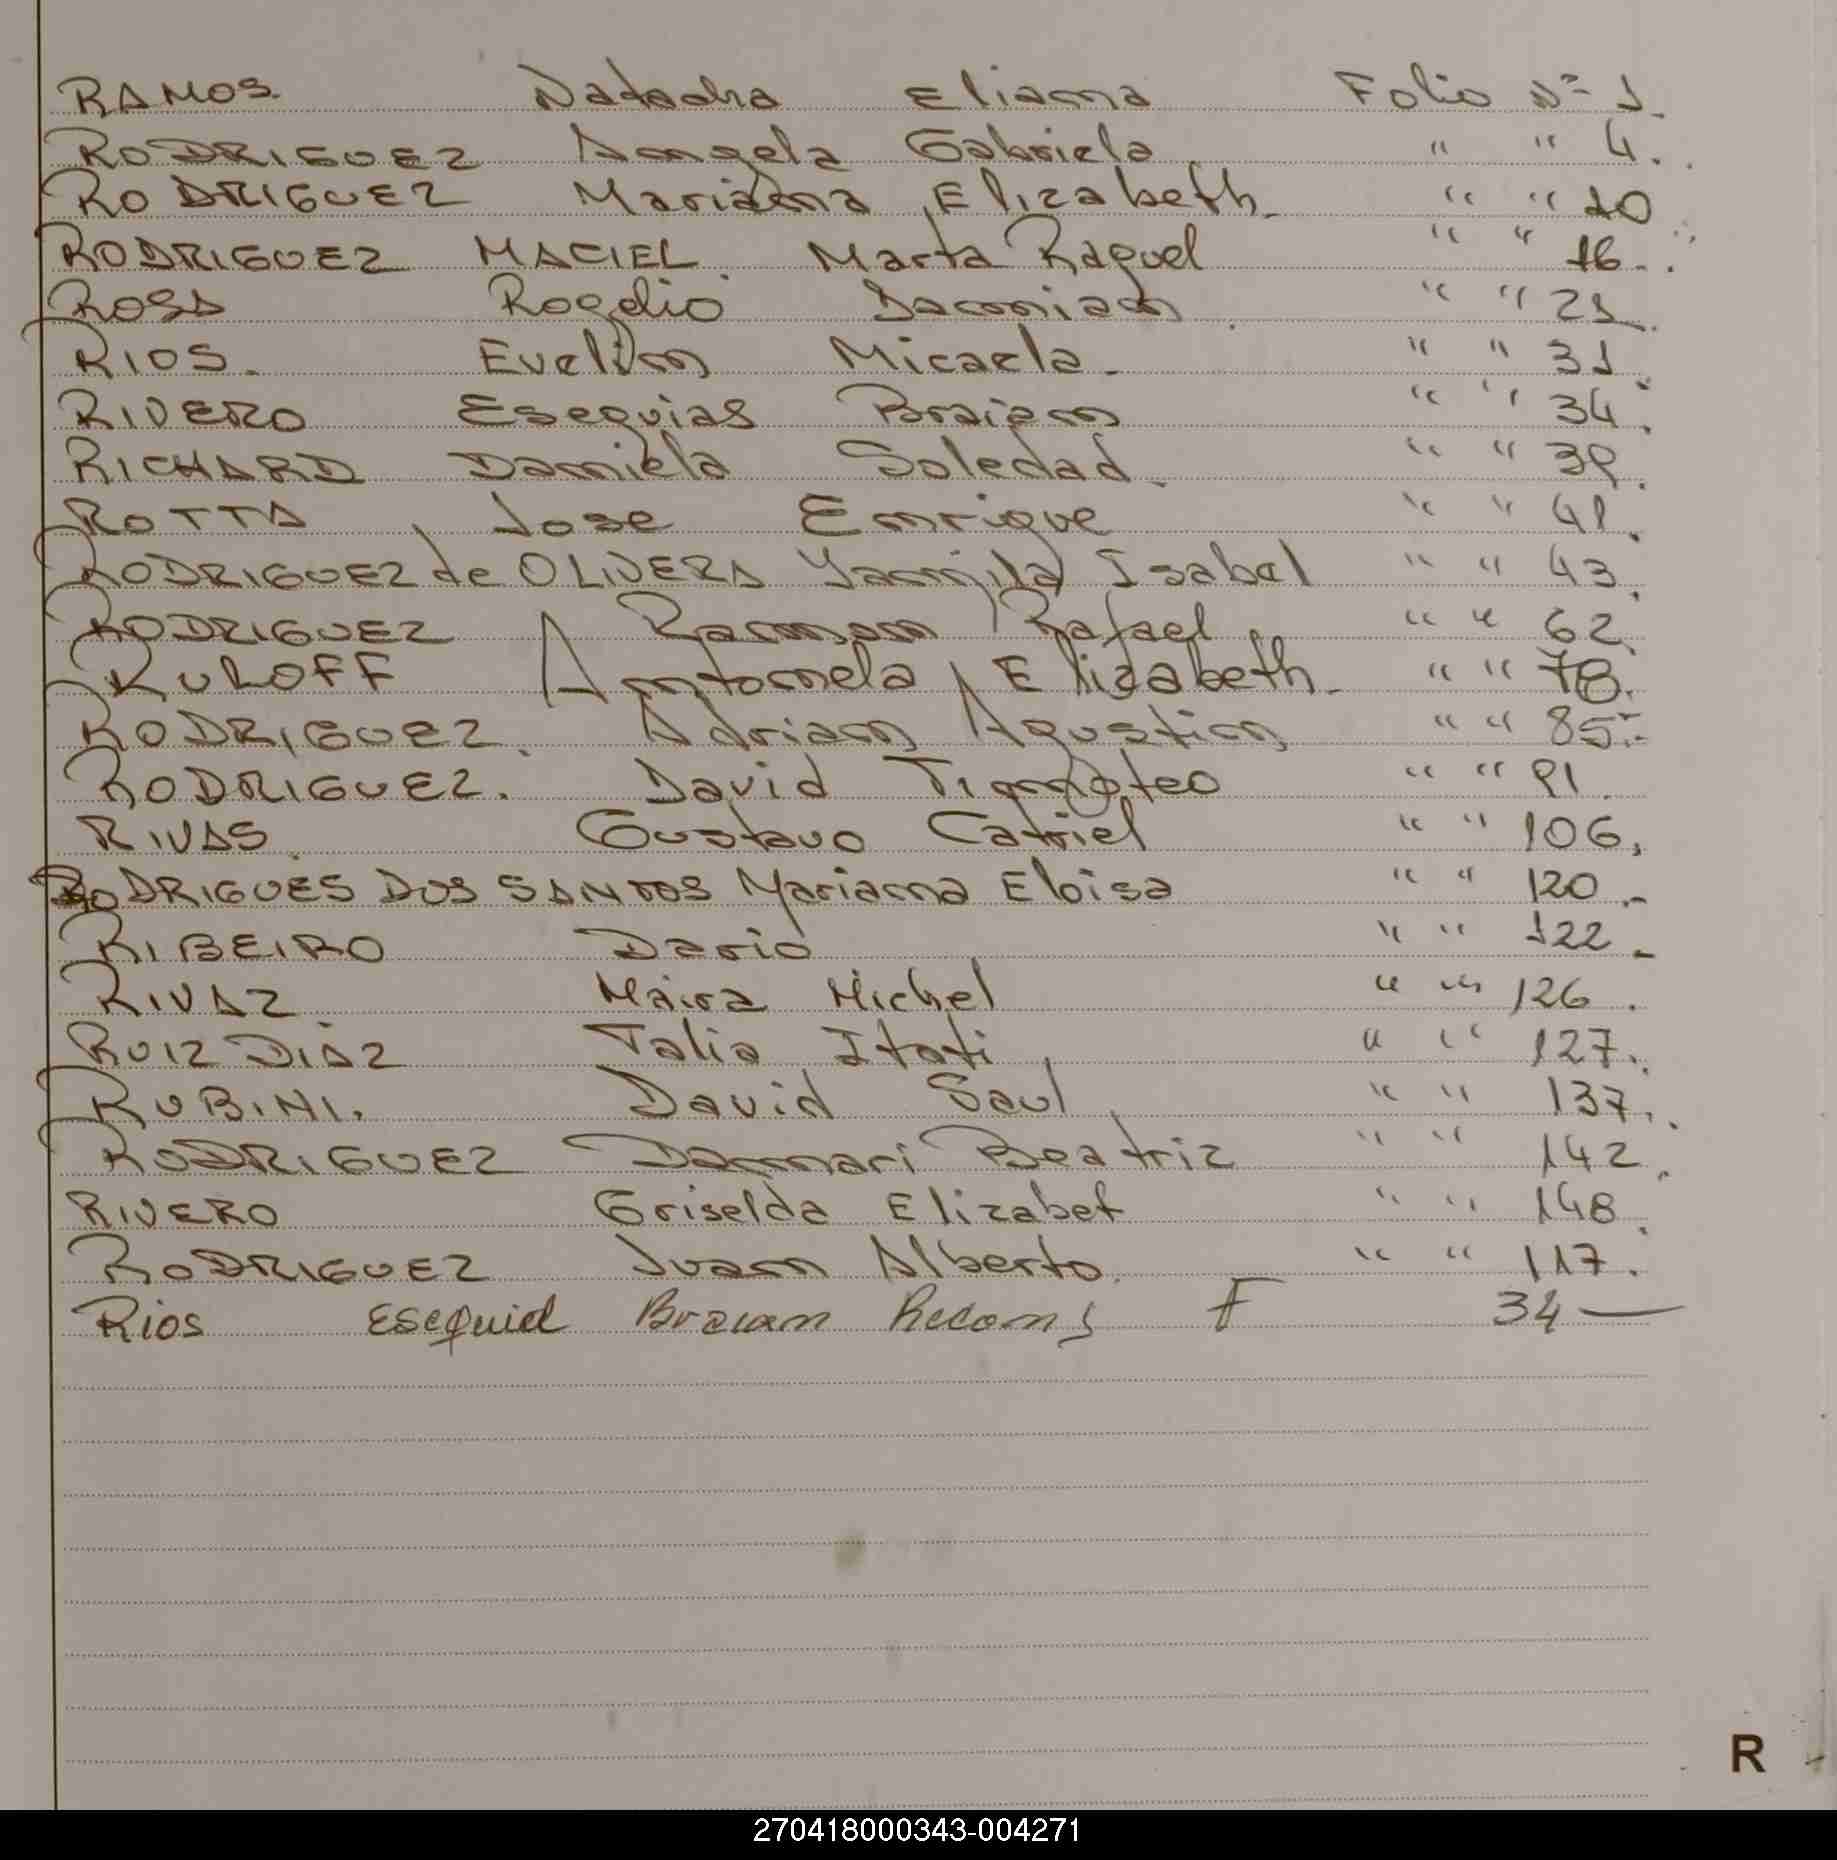 RAMOS. Natacha Eliana Folio Nº 1.
RODRIGUEZ Angela Gabriela " " 4.
RODRIGUEZ Mariana Elizabeth. " " 10
RODRIGUEZ MACIEL. Marta Raquel " " 16.
ROSA Rogelio Damian. " " 21
RIOS. Evelin Micaela. " " 31.
RIVERO Esequias Braian " " 34.
RICHARD Daniela Soledad. " " 39.
ROTTA Jose Enrique " " 41.
RODRIGUEZ de OLIVERA Yamila Isabel " " 43.
RODRIGUEZ Ramon Rafael. " " 62
RULOFF Antonela Elizabeth. " " 78.
RODRIGUEZ. Adrian Agustin " " 85.-
RODRIGUEZ. David Timoteo " " 91.
RIVAS. Gustavo Catriel " " 106.
RODRIGUES DOS SANTOS Mariana Eloisa " " 120.-
RIBEIRO Dario " " 122.-
RIVAZ Maira Michel " " 126.
RUIZ DIAZ Talia Itati " " 127.
RUBINI. David Saul " " 137.
RODRIGUEZ Damari Beatriz " " 142.
RIVERO Griselda Elizabet " " 148.
RODRIGUEZ Juan Alberto. " " 117.
Rios Esequiel Braian F 34 —
R
270418000343-004271